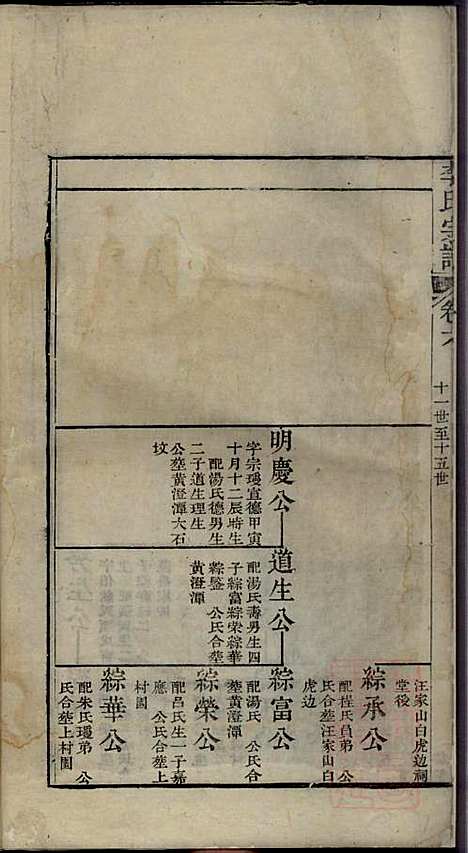 李氏宗譜
卷六
十一世至十五世
明慶公
字宗璦宣德甲寅
十月十二辰時生
配湯氏德男生
二子道生理生
公塟黃澄潭大石
坟
道生公
配湯氏壽男生四
子綜富綜榮綜華
綜鑒 公氏合塟
黃澄潭
汪家山白虎边祠
堂後
綜承公
配程氏貟弟 公
氏合塟汪家山白
虎边
綜富公
配湯氏 公氏合
塟黃澄潭
綜榮公
配呂氏生一子嘉
應 公氏合塟上
村園
綜華公
配朱氏璦弟 公
氏合塟上村園